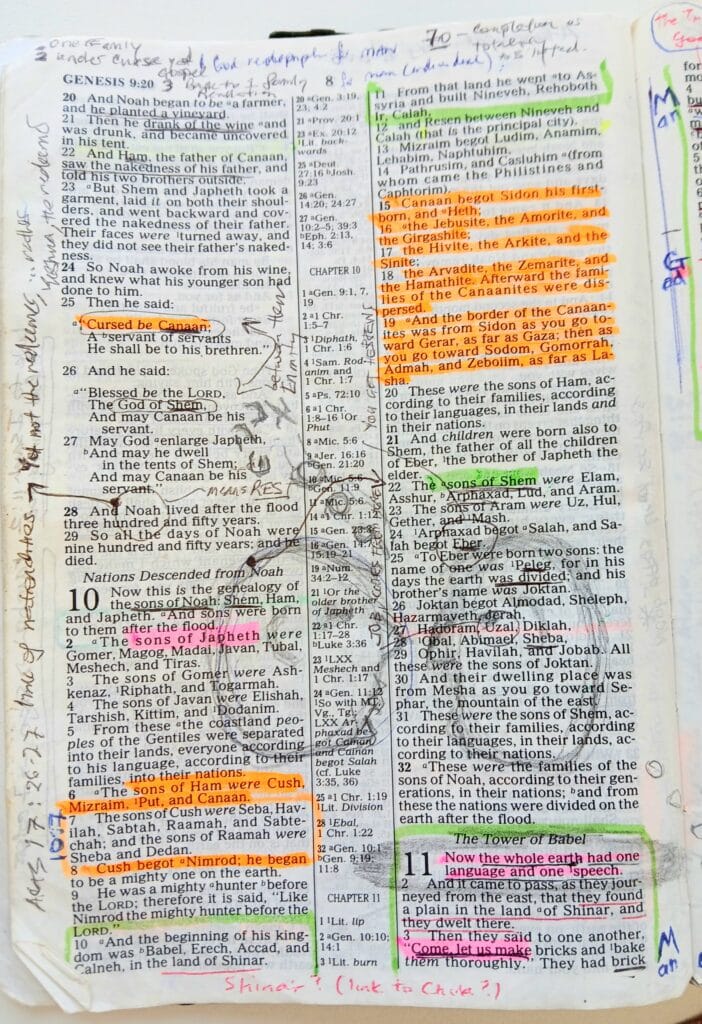 one Family
under curse yet
70 – completion as
God
for MAN
3 Back to 1 family
GENESIS 9:20
8
20 And Noah began to be ᵃa farmer,
and he planted a vineyard.
21 Then he drank of the wine ᵃand
was drunk, and became uncovered
in his tent.
22 And Ham, the father of Canaan,
saw the nakedness of his father, and
told his two brothers outside.
23 ᵃBut Shem and Japheth took a
garment, laid it on both their shoul-
ders, and went backward and cov-
ered the nakedness of their father.
Their faces were ¹turned away, and
they did not see their father's naked-
ness.
24 So Noah awoke from his wine,
and knew what his younger son had
done to him.
25 Then he said:
ᵃ"Cursed be Canaan;
A ᵇservant of servants
He shall be to his brethren."
26 And he said:
ᵃ"Blessed be the LORD,
The God of Shem,
And may Canaan be his
servant.
27 May God ᵃenlarge Japheth,
ᵇAnd may he dwell
in the tents of Shem;
And may Canaan be his
servant."
28 And Noah lived after the flood
three hundred and fifty years.
29 So all the days of Noah were
nine hundred and fifty years; and he
died.
Nations Descended from Noah
10 Now this is the genealogy of
the sons of Noah: Shem, Ham,
and Japheth. ᵃAnd sons were born
to them after the flood.
2 ᵃThe sons of Japheth were
Gomer, Magog, Madai, Javan, Tubal,
Meshech, and Tiras.
3 The sons of Gomer were Ash-
kenaz, ¹Riphath, and Togarmah.
4 The sons of Javan were Elishah,
Tarshish, Kittim, and ¹Dodanim.
5 From these ᵃthe coastland peo-
ples of the Gentiles were separated
into their lands, everyone according
to his language, according to their
families, into their nations.
6 ᵃThe sons of Ham were Cush,
Mizraim, ¹Put, and Canaan.
7 The sons of Cush were Seba, Hav-
ilah, Sabtah, Raamah, and Sabte-
chah; and the sons of Raamah were
Sheba and Dedan.
8 Cush begot ᵃNimrod; he began
to be a mighty one on the earth.
9 He was a mighty ᵃhunter ᵇbefore
the LORD; therefore it is said, "Like
Nimrod the mighty hunter before the
LORD."
10 ᵃAnd the beginning of his king-
dom was ᵇBabel, Erech, Accad, and
Calneh, in the land of Shinar.
20 ᵃGen. 3:19,
23; 4:2
21 ᵃProv. 20:1
23 ᵃEx. 20:12
¹Lit. back-
wards
25 ᵃDeut
27:16 ᵇJosh
9:23
26 ᵃGen.
14:20; 24:27
27 ᵃGen.
10:2–5; 39:3
ᵇEph. 2:13,
14; 3:6
CHAPTER 10
1 ᵃGen. 9:1, 7,
19
2 ᵃ1 Chr.
1:5–7
3 ¹Diphath,
1 Chr. 1:6
4 ¹Sam. Rod-
anim and
1 Chr. 1:7
5 ᵃPs. 72:10
6 ᵃ1 Chr.
1:8–16 ¹Or
Phut
8 ᵃMic. 5:6
9 ᵃJer. 16:16
ᵇGen. 21:20
10 ᵃMic. 5:6
ᵇGen. 11:9
11 ᵃMic. 5:6
14 ᵃ1 Chr. 1:12
15 ᵃGen. 23:3
15:19–21
19 ᵃNum.
34:2–12
21 ¹Or the
older brother
of Japheth
22 ᵃ1 Chr.
1:17–28
ᵇLuke 3:36
23 ¹LXX
Meshech and
1 Chr. 1:17
24 ᵃGen. 11:12
¹So with MT,
Vg., Tg.;
LXX Ar-
phaxad be-
got Cainan,
and Cainan
begot Salah
(cf. Luke
3:35, 36)
25 ᵃ1 Chr. 1:19
¹Lit. Division
28 ¹Ebal,
1 Chr. 1:22
32 ᵃGen. 10:1
ᵇGen. 9:19;
11:8
CHAPTER 11
1 ¹Lit. lip
2 ᵃGen. 10:10;
14:1
3 ¹Lit. burn
11 From that land he went ᵃto As-
syria and built Nineveh, Rehoboth
Ir, Calah,
12 and Resen between Nineveh and
Calah (that is the principal city).
13 Mizraim begot Ludim, Anamim,
Lehabim, Naphtuhim,
14 Pathrusim, and Casluhim ᵃ(from
whom came the Philistines and
Caphtorim).
15 Canaan begot Sidon his first-
born, and ᵃHeth;
16 ᵃthe Jebusite, the Amorite, and
the Girgashite;
17 the Hivite, the Arkite, and the
Sinite;
18 the Arvadite, the Zemarite, and
the Hamathite. Afterward the fami-
lies of the Canaanites were dis-
persed.
19 ᵃAnd the border of the Canaan-
ites was from Sidon as you go to-
ward Gerar, as far as Gaza; then as
you go toward Sodom, Gomorrah,
Admah, and Zeboiim, as far as La-
sha.
20 These were the sons of Ham, ac-
cording to their families, according
to their languages, in their lands and
in their nations.
21 And children were born also to
Shem, the father of all the children
of Eber, ¹the brother of Japheth the
elder.
22 The ᵃsons of Shem were Elam,
Asshur, ᵇArphaxad, Lud, and Aram.
23 The sons of Aram were Uz, Hul,
Gether, and ¹Mash.
24 ¹Arphaxad begot ᵃSalah, and Sa-
lah begot Eber.
25 ᵃTo Eber were born two sons: the
name of one was ¹Peleg, for in his
days the earth was divided; and his
brother's name was Joktan.
26 Joktan begot Almodad, Sheleph,
Hazarmaveth, Jerah,
27 Hadoram, Uzal, Diklah,
28 ¹Obal, Abimael, Sheba,
29 Ophir, Havilah, and Jobab. All
these were the sons of Joktan.
30 And their dwelling place was
from Mesha as you go toward Se-
phar, the mountain of the east.
31 These were the sons of Shem, ac-
cording to their families, according
to their languages, in their lands,
according to their nations.
32 ᵃThese were the families of the
sons of Noah, according to their gen-
erations, in their nations; ᵇand from
these the nations were divided on the
earth after the flood.
The Tower of Babel
11 Now the whole earth had one
language and one ¹speech.
2 And it came to pass, as they jour-
neyed from the east, that they found
a plain in the land ᵃof Shinar, and
they dwelt there.
3 Then they said to one another,
"Come, let us make bricks and ¹bake
them thoroughly." They had brick
Shinar? (link to China?)
ACTS 17:26-27 time of nationalities → Yet not the redeemer
means RES
10:7
Man
God
Man